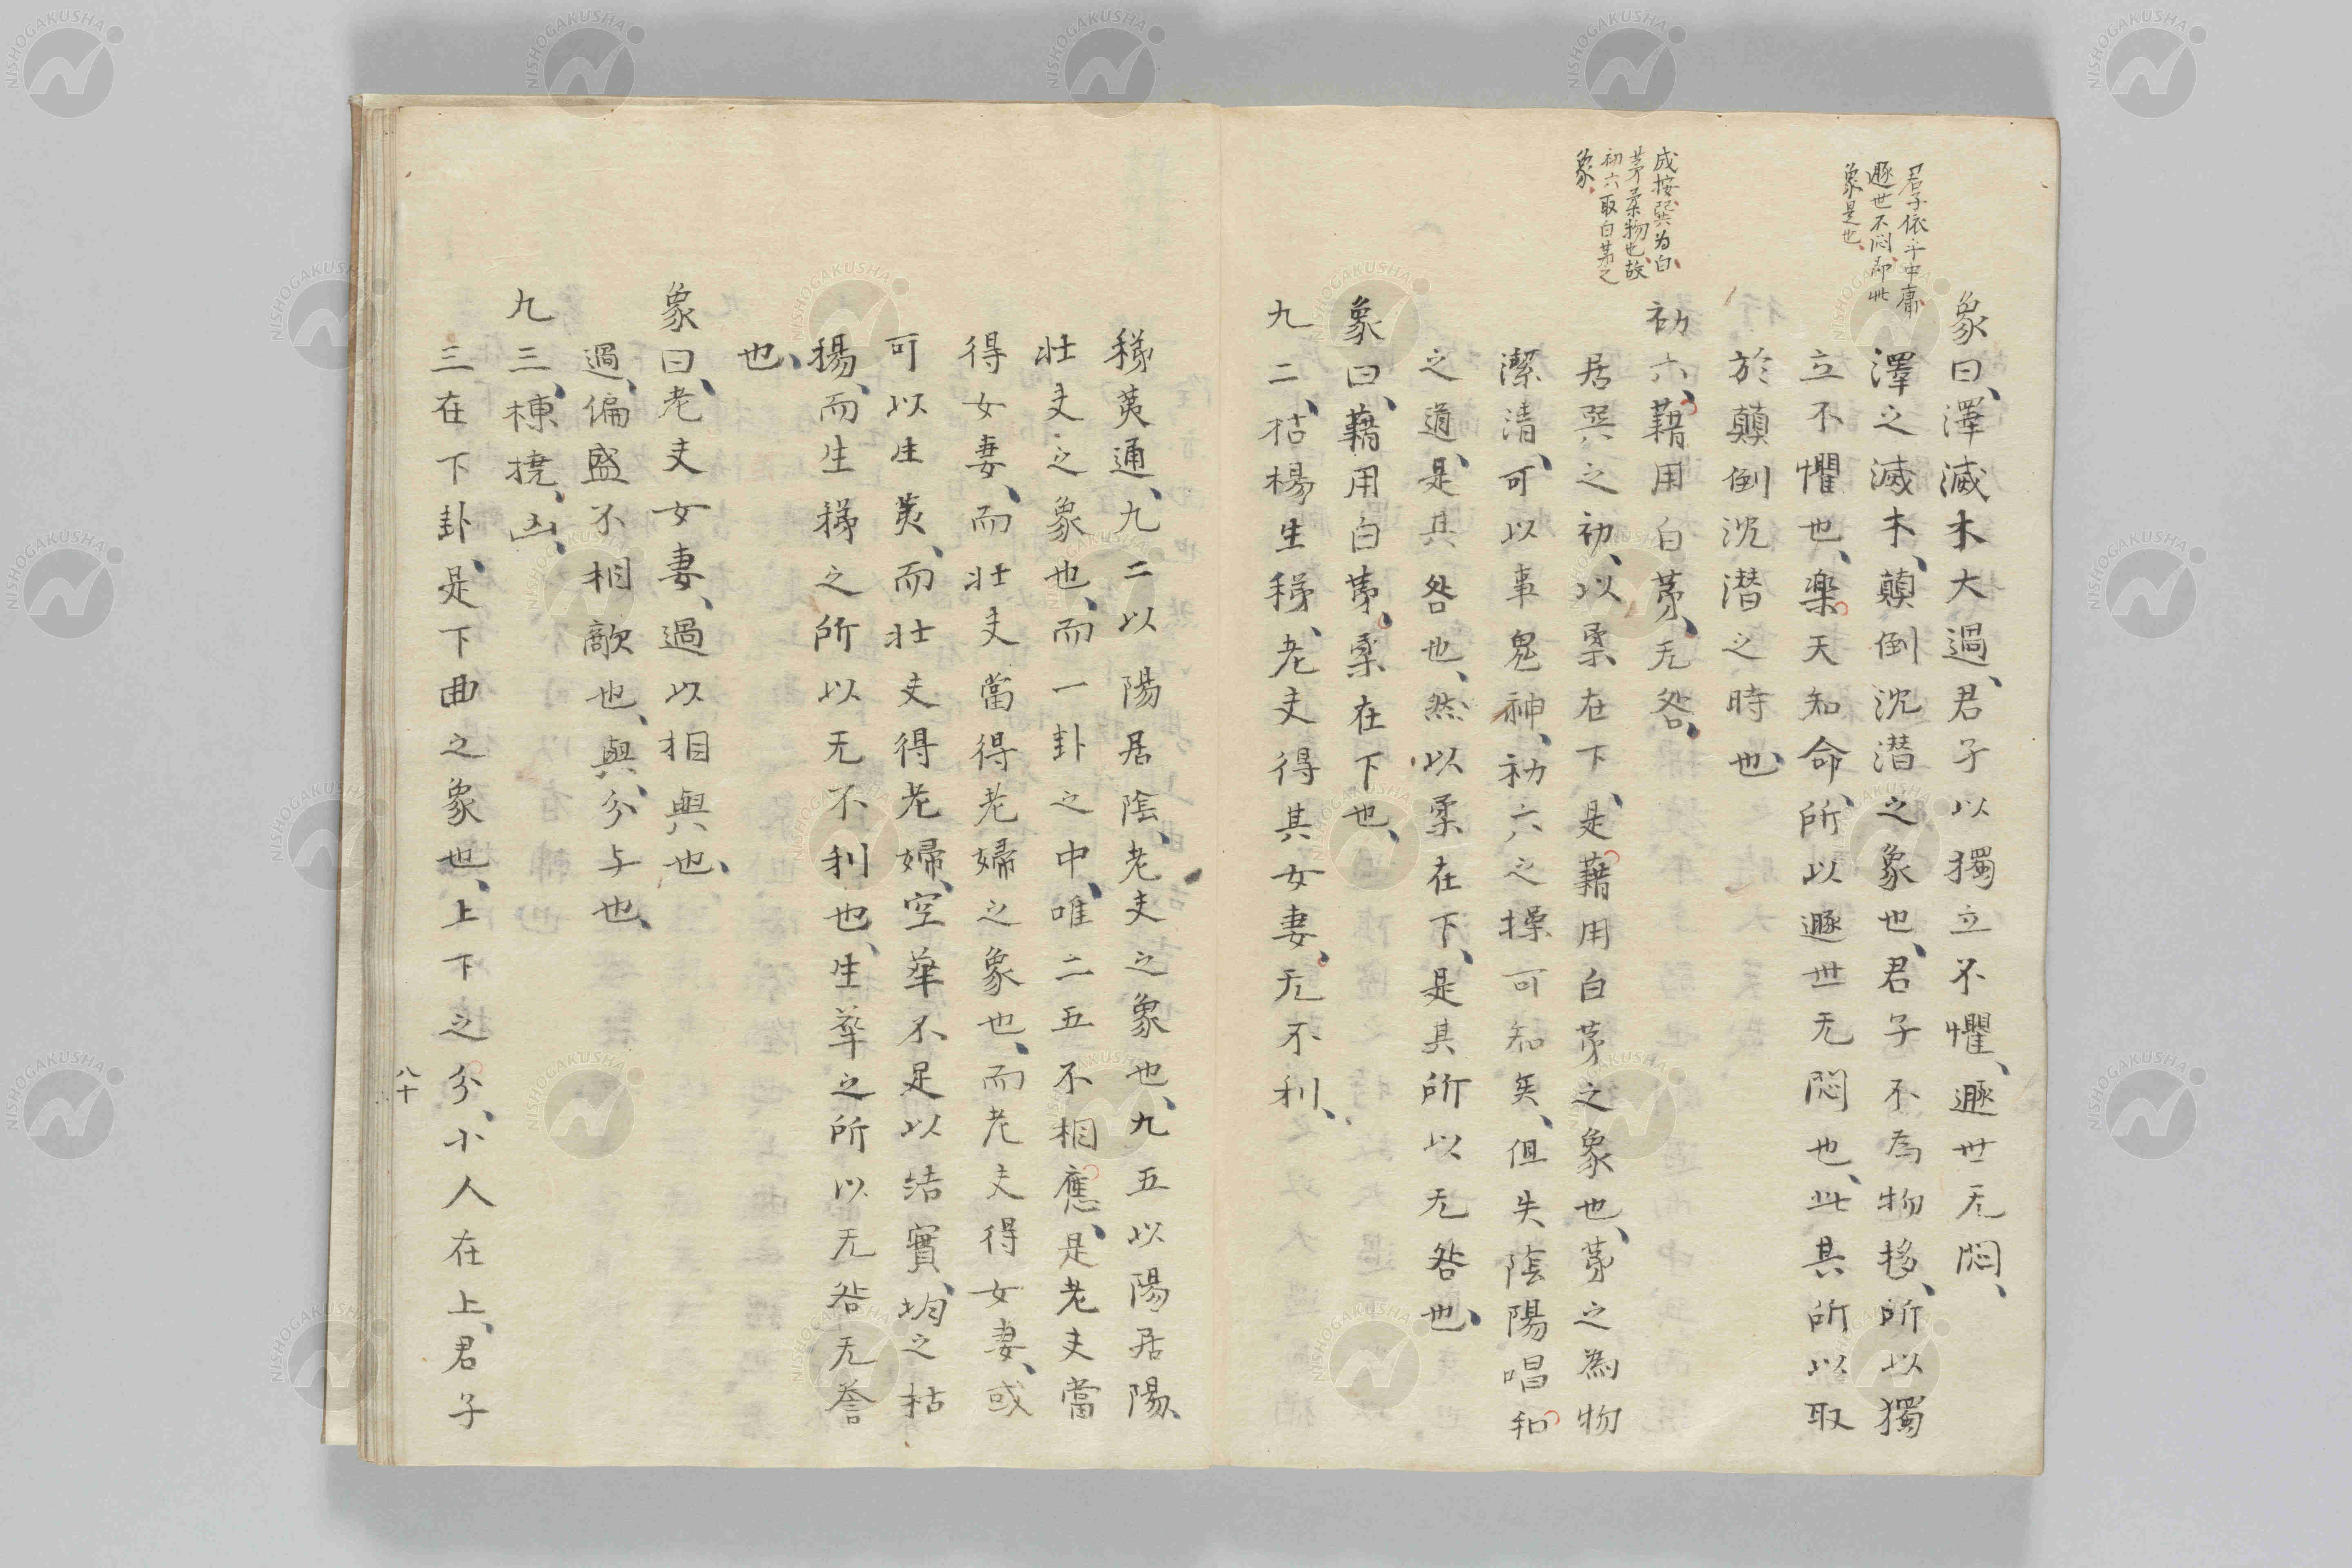 君子依乎中庸
遯世不悶、即此
象是也、
象曰、澤滅木大過、君子以獨立不懼、遯世无悶、
澤之滅木、顛倒沈潛之象也、君子不為物移、所以獨
立不懼也、樂天知命、所以遯世无悶也、此其所以取
於顛倒沈潛之時也、
成按、巽為白、
茅柔物也、故
初六取白茅之
象、
初六、藉用白茅、无咎、
居巽之初、以柔在下、是藉用白茅之象也、茅之為物
潔清、可以事鬼神、初六之操可知矣、但失陰陽唱和
之道、是其咎也、然以柔在下、是其所以无咎也、
象曰、藉用白茅、柔在下也、
九二、枯楊生稊、老夫得其女妻、无不利、
稊荑通、九二以陽居陰、老夫之象也、九五以陽居陽、
壯夫之象也、而一卦之中、唯二五不相應、是老夫當
得女妻、而壯夫當得老婦之象也、而老夫得女妻、或
可以生荑、而壯夫得老婦、空華不足以結實、均之枯
楊、而生稊之所以无不利也、生華之所以无咎无譽
也、
象曰、老夫女妻、過以相與也、
過、偏盛不相敵也、與、分与也、
九三、棟撓、凶、
三在下卦、是下曲之象也、上下之分、小人在上、君子
八十
NISHOGAKUSHA